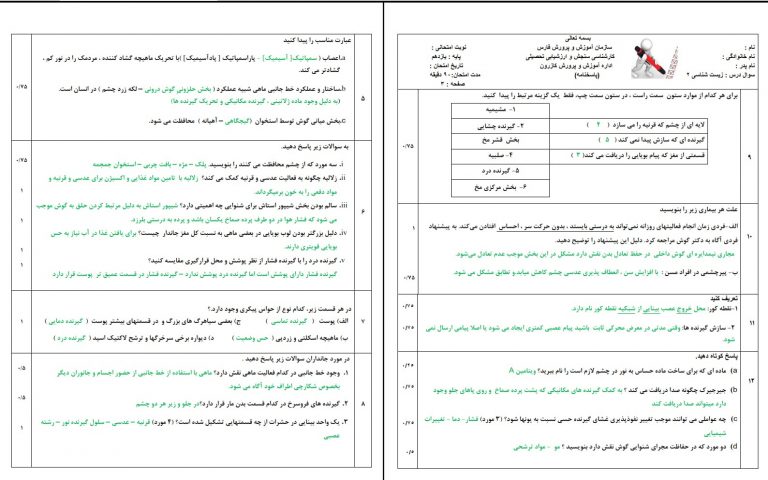 بسمه تعالی
نام :
سازمان آموزش و پرورش فارس
نوبت امتحانی :
نام خانوادگی :
کارشناسی سنجش و ارزشیابی تحصیلی
پایه : یازدهم
نام پدر :
اداره آموزش و پرورش کازرون
تاریخ امتحان :
سوال درس : زیست شناسی ۲
(پاسخنامه)
مدت امتحان: ۹۰ دقیقه
صفحه : ۳
برای هر کدام از موارد ستون سمت راست ، در ستون سمت چپ، فقط یک گزینه مرتبط را پیدا کنید.
۱- مشیمیه
لایه ای از چشم که قرنیه را می سازد ( ۴ )
۲- گیرنده چشایی
گیرنده ای که سازش پیدا نمی کند ( ۵ )
بخش قشر مخ
قسمتی از مغز که پیام بویایی را دریافت می کند( ۳ )
۴- صلبیه
۵- گیرنده درد
۶- بخش مرکزی مخ
۹
۰/۷۵
علت هر بیماری زیر را بنویسید
الف- فردی زمان انجام فعالیتهای روزانه نمی‌تواند به درستی بایستد ، بدون حرکت سر ، احساس افتادن می‌کند. به پیشنهاد
فردی آگاه به دکتر گوش مراجعه کرد. دلیل این پیشنهاد را توضیح دهید.
مجاری نیمدایره ای گوش داخلی در حفظ تعادل بدن نقش دارد مشکل در این بخش موجب عدم تعادل می‌شود.
ب- پیرچشمی در افراد مسن : با افزایش سن ، انعطاف پذیری عدسی چشم کاهش میابد.و تطابق مشکل می شود.
۱۰
۱
۰/۷۵
تعریف کنید
۱-نقطه کور: محل خروج عصب بینایی از شبکیه نقطه کور نام دارد.
۲- سازش گیرنده ها: وقتی مدتی در معرض محرکی ثابت باشید پیام عصبی کمتری ایجاد می شود یا اصلا پیامی ارسال نمی
شود
۱۱
۰/۷۵
پاسخ کوتاه دهید.
a) ماده ای که برای ساخت ماده حساس به نور در چشم لازم است را نام ببرید؟ ویتامین A
b) جیرجیرک چگونه صدا دریافت می کند ؟ به کمک گیرنده های مکانیکی که پشت پرده صماخ و روی پاهای جلو وجود
دارد میتواند صدا دریافت کند
c) چه عواملی می توانند موجب تغییر نفوذپذیری غشای گیرنده حسی نسبت به یونها شود؟ (۳ مورد) فشار- دما - تغییرات
شیمیایی
d) دو مورد که در حفاظت مجرای شنوایی گوش نقش دارد بنویسید ؟ مو - مواد ترشحی
۱۲
۰/۲۵
۰/۷۵
۰/۵
عبارت مناسب را پیدا کنید
a.اعصاب ( سمپاتیک[ آسیمیک] - پاراسمپاتیک [ پادآسیمیک] )با تحریک ماهیچه گشاد کننده ، مردمک را در نور کم ،
گشادتر می کند.
b.ساختار و عملکرد خط جانبی ماهی شبیه عملکرد ( بخش حلزونی گوش درونی – لکه زرد چشم ) در انسان است.
(به دلیل وجود ماده ژلاتینی ، گیرنده مکانیکی و تحریک گیرنده ها)
c.بخش میانی گوش توسط استخوان (گیجگاهی – آهیانه ) محافظت می شود.
۵
۰/۷۵
به سوالات زیر پاسخ دهید.
i. سه مورد که از چشم محافظت می کنند را بنویسید. پلک – مژه – بافت چربی – استخوان جمجمه
ii. زلالیه چگونه به فعالیت عدسی و قرنیه کمک می کند؟ زلالیه با تامین مواد غذایی و اکسیژن برای عدسی و قرنیه و
مواد دفعی را به خون برمیگرداند.
iii. سالم بودن بخش شیپور استاش برای شنوایی چه اهمیتی دارد؟ شیپور استاش به دلیل مرتبط کردن حلق به گوش موجب
می شود که فشار هوا در دو طرف پرده صماخ یکسان باشد و پرده به درستی بلرزد.
iv. دلیل بزرگتر بودن لوب بویایی در بعضی ماهی به نسبت کل مغز جاندار چیست؟ برای یافتن غذا در آب نیاز به حس
بویایی قویتری دارند.
v. گیرنده درد را با گیرنده فشار از نظر پوشش و محل قرارگیری مقایسه کنید؟
گیرنده فشار دارای پوشش است اما گیرنده درد پوشش ندارد – گیرنده فشار در قسمت عمیق تر پوست قرار دارد
۶
۰/۷۵
۱
۱
۱
۱
در هر قسمت زیر، کدام نوع از حواس پیکری وجود دارد.؟
الف) پوست ( گیرنده تماسی ) ج) بعضی سیاهرگ های بزرگ و در قسمتهای بیشتر پوست ( گیرنده دمایی )
ب) ماهیچه اسکلتی و زردپی ( حس وضعیت ) د) دیواره برخی سرخرگها و ترشح لاکتیک اسید ( گیرنده درد )
۷
۱
در مورد جانداران سوالات زیر پاسخ دهید .
۱. وجود خط جانبی در کدام فعالیت ماهی نقش دارد؟ ماهی با استفاده از خط جانبی از حضور اجسام و جانوران دیگر
بخصوص شکارچی اطراف خود آگاه می شود.
۲. گیرنده های فروسرخ در کدام قسمت بدن مار قرار دارد؟در جلو و زیر هر دو چشم
۳. یک واحد بینایی در حشرات از چه قسمتهایی تشکیل شده است؟ (۴ مورد) قرنیه – عدسی – سلول گیرنده نور – رشته
عصبی
۸
۰/۵
۰/۵
۱